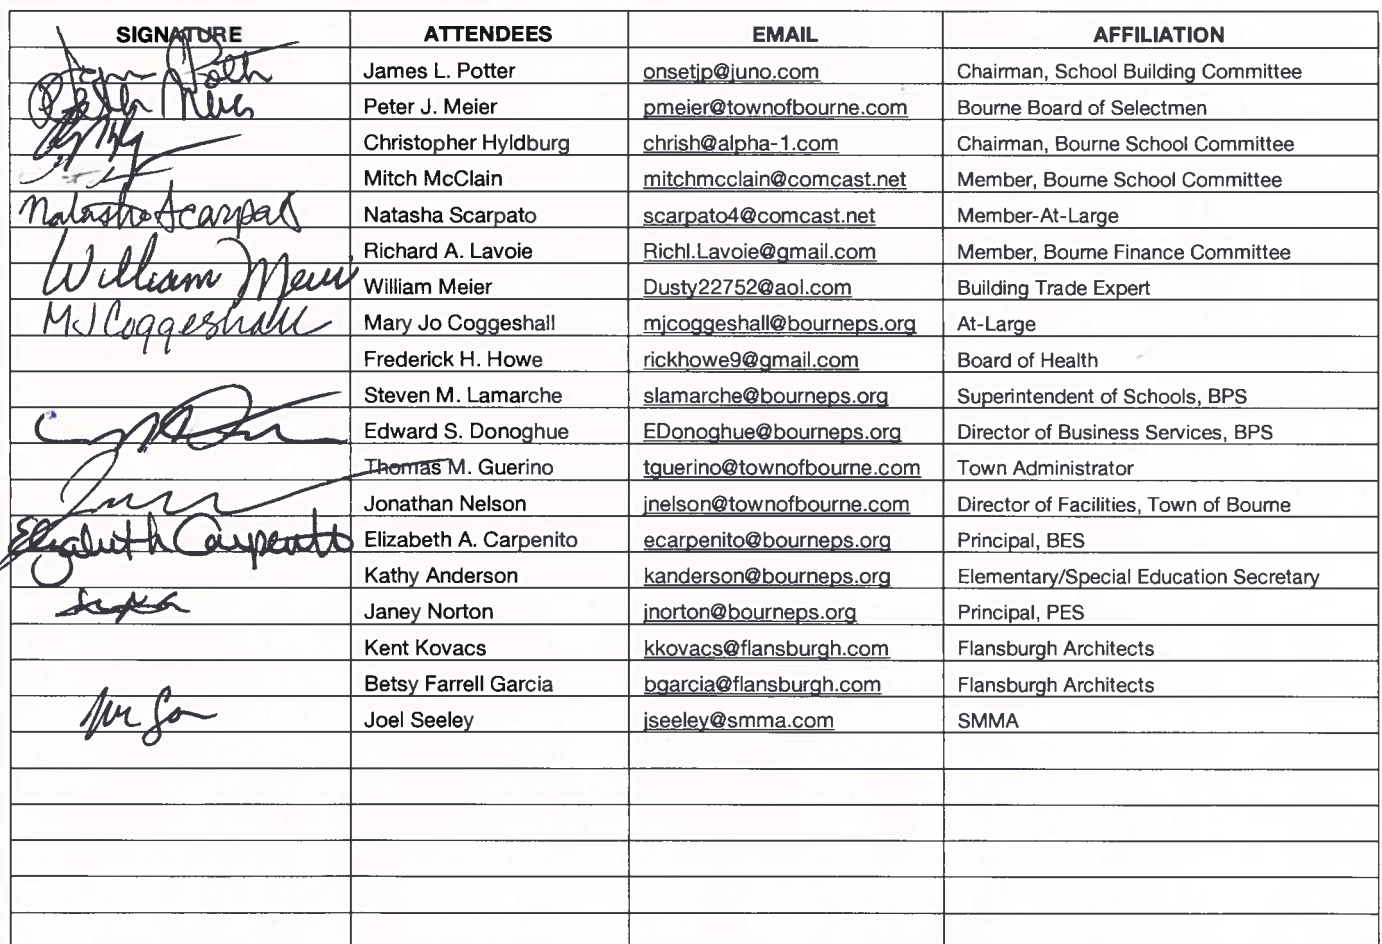 SIGNATURE ATTENDEES EMAIL AFFILIATION
James L. Potter onsetjp@juno.com Chairman, School Building Committee
Peter Meier Peter J. Meier pmeier@townofbourne.com Bourne Board of Selectmen
Christopher Hyldburg chrish@alpha-1.com Chairman, Bourne School Committee
Mitch McClain mitchmcclain@comcast.net Member, Bourne School Committee
Natasha Scarpato Natasha Scarpato scarpato4@comcast.net Member-At-Large
Richard A. Lavoie Richl.Lavoie@gmail.com Member, Bourne Finance Committee
William Meier William Meier Dusty22752@aol.com Building Trade Expert
MJ Coggeshall Mary Jo Coggeshall mjcoggeshall@bourneps.org At-Large
Frederick H. Howe rickhowe9@gmail.com Board of Health
Steven M. Lamarche slamarche@bourneps.org Superintendent of Schools, BPS
Edward S. Donoghue EDonoghue@bourneps.org Director of Business Services, BPS
Thomas M. Guerino tguerino@townofbourne.com Town Administrator
Jonathan Nelson jnelson@townofbourne.com Director of Facilities, Town of Bourne
Elizabeth Carpenito Elizabeth A. Carpenito ecarpenito@bourneps.org Principal, BES
Kathy Anderson kanderson@bourneps.org Elementary/Special Education Secretary
Janey Norton jnorton@bourneps.org Principal, PES
Kent Kovacs kkovacs@flansburgh.com Flansburgh Architects
Betsy Farrell Garcia bgarcia@flansburgh.com Flansburgh Architects
Joel Seeley jseeley@smma.com SMMA